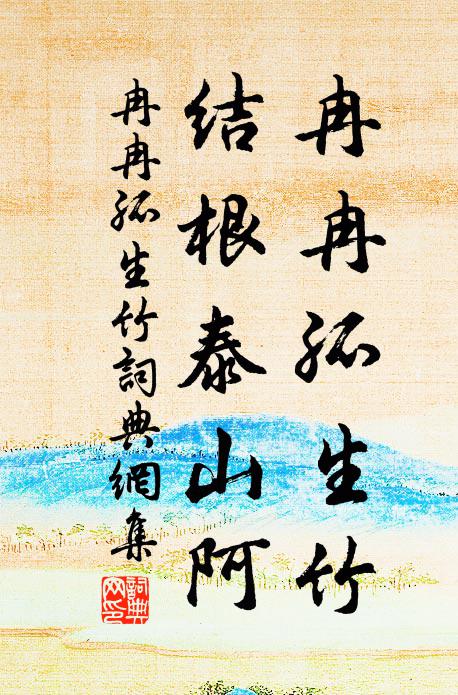 冉冉孤生竹
结根泰山阿
冉冉孤生竹詞典網集
詞典网印